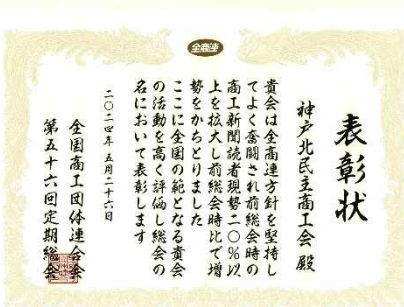 全商連
表彰状
神戸北民主商工会 殿
貴会は全商連方針を堅持し
てよく奮闘され前総会時の
商工新聞読者現勢二〇%以
上を拡大し前総会時比で増
勢をかちとりました
ここに全国の範となる貴会
の活動を高く評価し総会の
名において表彰します
二〇二四年五月二十六日
全国商工団体連合会
第五十六回定期総会